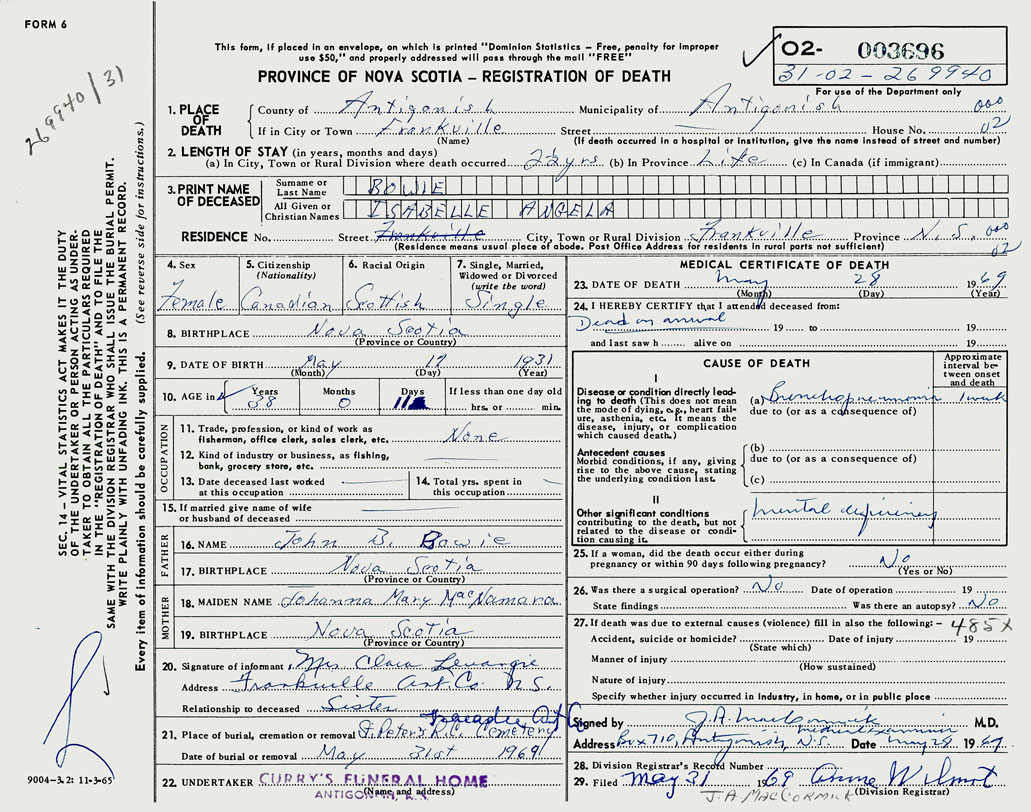 FORM 6
This form, if placed in an envelope, on which is printed "Dominion Statistics – Free, penalty for improper
use $50," and properly addressed will pass through the mail "FREE"
PROVINCE OF NOVA SCOTIA – REGISTRATION OF DEATH
02- 003696
31-02-269940
For use of the Department only
269940/31
SEC. 14 – VITAL STATISTICS ACT MAKES IT THE DUTY
OF THE UNDERTAKER OR PERSON ACTING AS UNDER-
TAKER TO OBTAIN ALL THE PARTICULARS REQUIRED
IN THE "REGISTRATION OF DEATH" AND TO FILE THE
SAME WITH THE DIVISION REGISTRAR WHO SHALL ISSUE THE BURIAL PERMIT.
WRITE PLAINLY WITH UNFADING INK. THIS IS A PERMANENT RECORD.
Every item of information should be carefully supplied. (See reverse side for instructions.)
1. PLACE OF DEATH
County of Antigonish Municipality of Antigonish 000
If in City or Town Frankville Street House No. 02
(Name) (If death occurred in a hospital or institution, give the name instead of street and number)
2. LENGTH OF STAY (in years, months and days)
(a) In City, Town or Rural Division where death occurred 22 yrs (b) In Province Life (c) In Canada (if immigrant)
3. PRINT NAME OF DECEASED
Surname or Last Name BOWIE
All Given or Christian Names ISABELLE ANGELA
RESIDENCE No. Street Frankville City, Town or Rural Division Frankville Province N.S. 000
02
(Residence means usual place of abode. Post Office Address for residents in rural parts not sufficient)
4. Sex Female
5. Citizenship (Nationality) Canadian
6. Racial Origin Scottish
7. Single, Married, Widowed or Divorced (write the word) Single
8. BIRTHPLACE Nova Scotia
(Province or Country)
9. DATE OF BIRTH May 17 1931
(Month) (Day) (Year)
10. AGE in Years 38 Months 0 Days 11 If less than one day old
hrs. or min.
OCCUPATION
11. Trade, profession, or kind of work as
fisherman, office clerk, sales clerk, etc. None
12. Kind of industry or business, as fishing,
bank, grocery store, etc.
13. Date deceased last worked
at this occupation
14. Total yrs. spent in
this occupation
15. If married give name of wife
or husband of deceased
FATHER
16. NAME John B. Bowie
17. BIRTHPLACE Nova Scotia
(Province or Country)
MOTHER
18. MAIDEN NAME Johanna Mary MacNamara
19. BIRTHPLACE Nova Scotia
(Province or Country)
20. Signature of informant Mrs Clara Levangie
Address Frankville Ant. Co. N.S.
Relationship to deceased Sister
Tracadie Ant Co
21. Place of burial, cremation or removal St. Peter's R.C. Cemetery
Date of burial or removal May 31st 1969
22. UNDERTAKER CURRY'S FUNERAL HOME
(Name and address)
ANTIGONISH, N.S.
9004-3.2: 11-3-65
MEDICAL CERTIFICATE OF DEATH
23. DATE OF DEATH May 28 1969
(Month) (Day) (Year)
24. I HEREBY CERTIFY that I attended deceased from:
Dead on arrival 19 to 19
and last saw h alive on 19
CAUSE OF DEATH
Approximate interval between onset and death
I
Disease or condition directly lead-
ing to death (This does not mean
the mode of dying, e.g., heart fail-
ure, asthenia, etc. It means the
disease, injury, or complication
which caused death.)
(a) Bronchopneumonia 1 week
due to (or as a consequence of)
Antecedent causes
Morbid conditions, if any, giving
rise to the above cause, stating
the underlying condition last.
(b)
due to (or as a consequence of)
(c)
II
Other significant conditions
contributing to the death, but not
related to the disease or condi-
tion causing it.
mental deficiency
25. If a woman, did the death occur either during
pregnancy or within 90 days following pregnancy? No
(Yes or No)
26. Was there a surgical operation? No Date of operation 19
State findings Was there an autopsy? No
27. If death was due to external causes (violence) fill in also the following: – 485X
Accident, suicide or homicide? Date of injury 19
(State which)
Manner of injury
(How sustained)
Nature of injury
Specify whether injury occurred in Industry, in home, or in public place
Signed by J.A. MacCormick M.D.
medical examiner
Address Box 710, Antigonish, N.S. Date May 28 1969
28. Division Registrar's Record Number
29. Filed May 31 1969 Anne Wilmot
(Division Registrar)
J.A. MACCORMICK